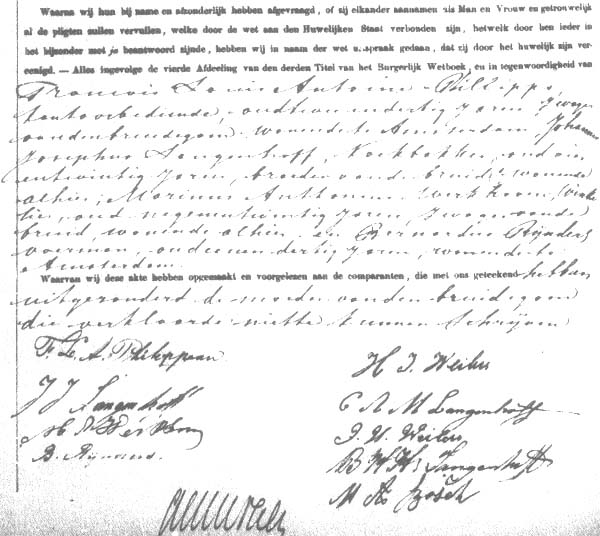 Waarna wij hun bij name en afzonderlijk hebben afgevraagd, of zij elkander aannamen als Man en Vrouw en getrouwelijk
al de pligten zullen vervullen, welke door de wet aan den Huwelijken Staat verbonden zijn, hetwelk door hen ieder in
het bijzonder met ja beantwoord zijnde, hebben wij in naam der wet uitspraak gedaan, dat zij door het huwelijk zijn ver-
eenigd. — Alles ingevolge de vierde Afdeeling van den derden Titel van het Burgerlijk Wetboek, en in tegenwoordigheid van
Francois Louis Antoine Philippo,
kantoorbediende, oud twee en dertig jaren, zwager
van den bruidegom, wonende te Amsterdam, Johannes
Josephus Langenhoff, Kockbakker, oud
en twintig jaren, broeder van de bruid, wonende
alhier, Marinus Anthonie Werkhoven,
oud negen en twintig jaren, zwager van de
bruid, wonende alhier, en Bernardus Rijnders
voerman, oud en dertig jaren, wonende te
Amsterdam.
Waarvan wij deze akte hebben opgemaakt en voorgelezen aan de comparanten, die met ons geteekend hebben
uitgezonderd de moeder van den bruidegom
die verklaarde niet te kunnen schrijven
F. L. A. Philippo
H J. Weilers
J J Langenhoff
C A M Langenhoff
M. A. Werkhoven
J. H. Weilers
B. Rijnders.
B H H Langenhoff
M A Bosch